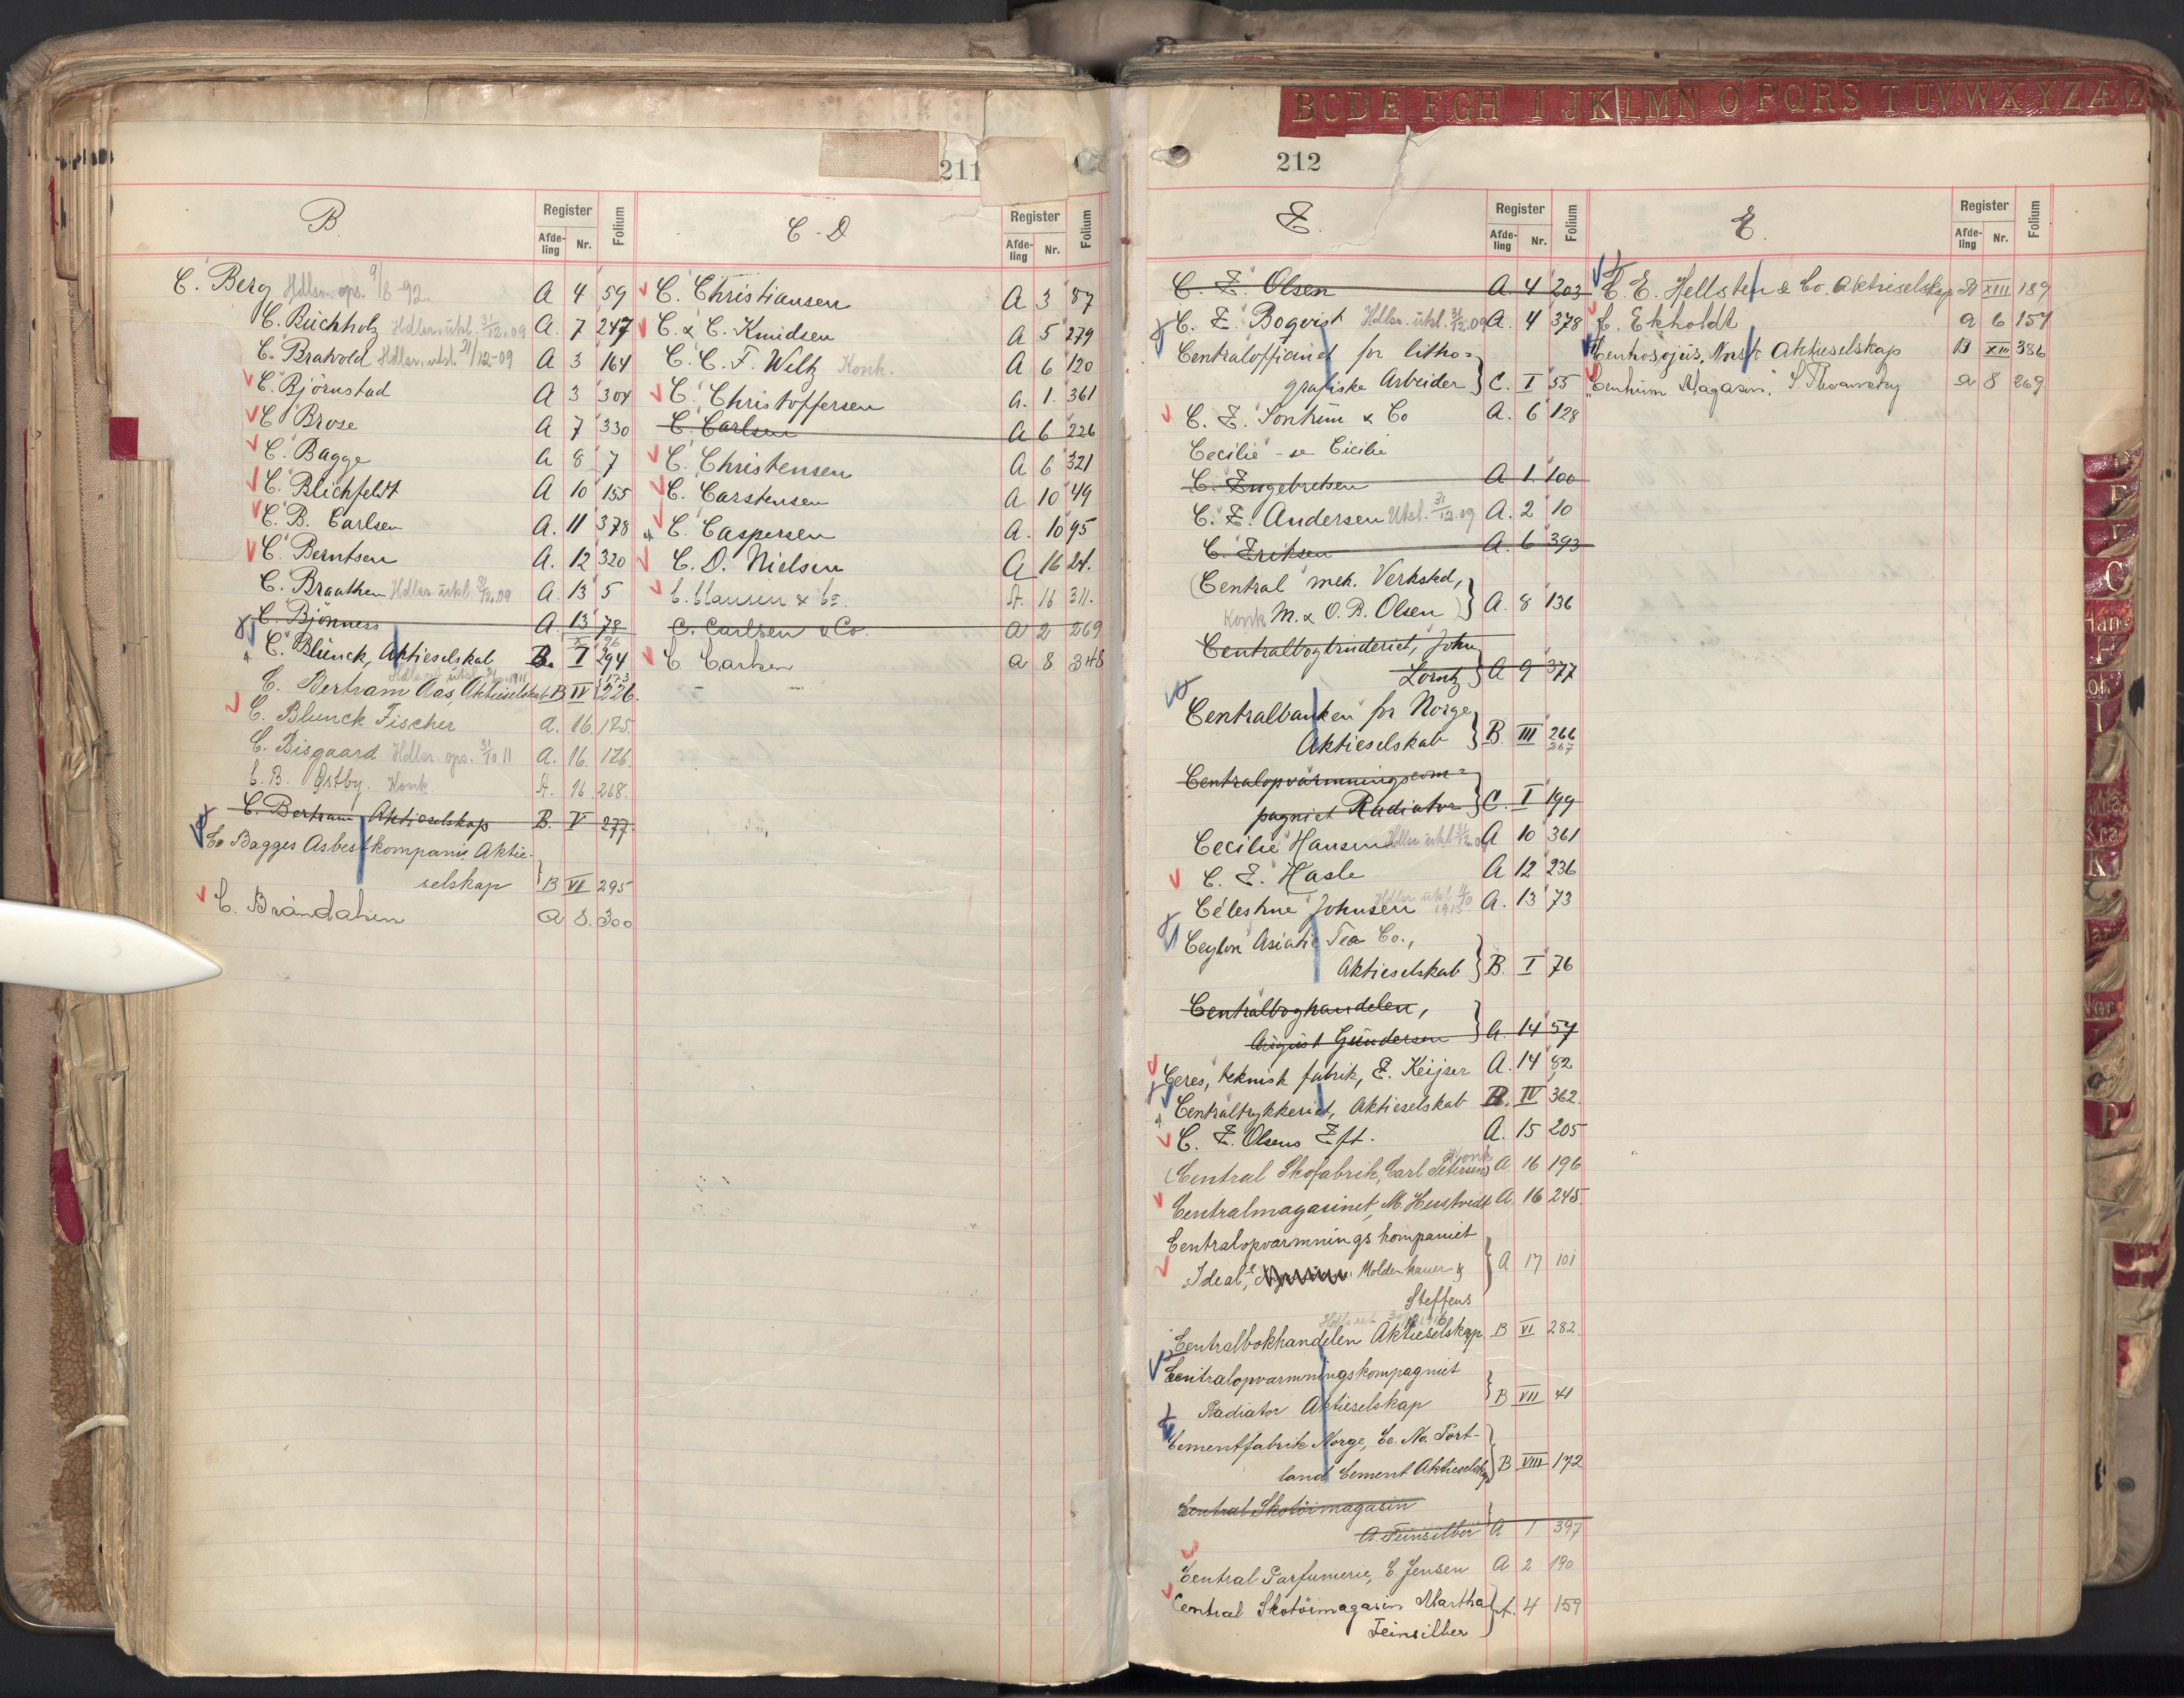 BCDE FGH I JKLMN O PQRS T UVWXYZÆØ
211
B.
Register
Afde-
ling
Nr.
Folium
C. Berg Hdlsr. ops. 9/8-92. A 4 59
C. Büchholz Hdlsr. utsl. 31/12.09 A. 7 247
C. Bratvold Hdlsr. utsl. 31/12-09 A 3 164
C. Björnstad A 3 304
C. Brose A 7 330
C. Bagge A 8 7
C. Blichfeldt A 10 155
C. B. Carlsen A. 11 378
C. Berntsen A. 12 320
C. Braathen Hdlsr. utsl. 31/12.09 A. 13 5
C. Bjönness A. 13 78
C. Blunck, Aktieselskab B. I 294
C. Bertram Aas, Aktieselskab B IV 226.
C. Blunck Fischer A. 16. 125.
C. Bisgaard Hdlsr. ops. 31/10 11 A. 16. 126.
C. B. Østby. Konk. A. 16 268.
C. Bertram Aktieselskap B. V 277.
Co Bagges Asbestkompani Aktie-
selskap B VI 295
C. Brändalien A 8. 300
C-D
Register
Afde-
ling
Nr.
Folium
C. Christiansen A 3 87
C. & C. Knudsen A 5 279
C. C. F. Wiltz Konk. A 6 120
C. Christoffersen A. 1. 361
C. Carlsen A 6 226
C. Christensen A 6 321
C. Carstensen A 10 49
C. Caspersen A. 10 95
C. D. Nielsen A 16 24.
C. Clausen & Co. A. 16 311.
C. Carlsen & Co. A 2 269
C. Carlsen A 8 348
212
E.
Register
Afde-
ling
Nr.
Folium
C. E. Olsen A. 4 203
C. E. Boqvist Hdlsr. utsl. 31/12.09 A. 4 378
Centralofficinet for litho=
grafiske Arbeider C. I 55
C. E. Sontum & Co A. 6 128
Cecilie - se Cicilie
C. Engebretsen A 1. 100
C. E. Andersen Utsl. 31/12.09 A. 2 10
C. Eriksen A. 6 393
(Central mek. Verksted,
Konk M. & O. B. Olsen) A. 8 136
Centralbogtrykkeriet, John
Lorntz A 9 377
Centralbanken for Norge
Aktieselskab B. III 266
267
Centralopvarmningscom=
pagniet Radiator C. I 199
Cecilie Hansen Hdlsr utsl 31/12.09 A 10 361
C. E. Hasle A 12 236
Célestine Johnsen A. 13 73
Ceylon Asiatic Tea Co.,
Aktieselskab B. I 76
Centralboghandelen,
August Gundersen A. 14 57
Ceres, teknisk fabrik, E. Keijser A. 14 82
Centraltrykkeriet, Aktieselskab B. IV 362.
C. E. Olsens Eft. A. 15 205
(Central Skofabrik, Carl Petersen) Konk A 16 196
Centralmagasinet, M. Herstvedt A. 16 245.
Centralopvarmnings kompaniet
"Ideal", Moldenhauer &
Steffens A 17 101
Centralbokhandelen Aktieselskap. B VI 282.
Centralopvarmningskompagniet
Radiator Aktieselskap B VII 41
Cementfabrik Norge, Co. No. Port-
land Cement Aktieselskap B VIII 172
Central Skotöimagasin
A. Feinsilber A 1 397
Central Parfumerie, C Jensen A 2 190
Central Skotöimagasin Martha
Feinsilber A. 4 159
E.
Register
Afde-
ling
Nr.
Folium
C. E. Hellsten & Co. Aktieselskap B XIII 189
C. Ekholdt A 6 157
Centrosojus, Norsk Aktieselskap B XIII 386
"Centrum Magasin", A 8 269.